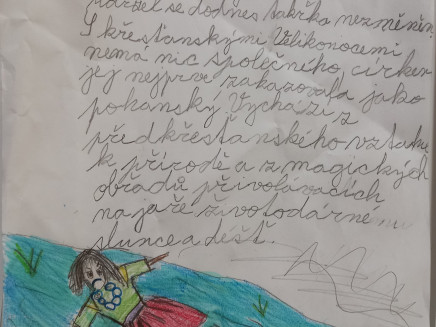 držel se dodnes takřka nezměněn.
S křesťanskými Velikonocemi
nemá nic společného, církev
jej nejprve zakazovala jako
pohanský. Vychází z
předkřesťanského vztahu
k přírodě a z magických
obřadů přivolávacích
na jaře životodárné
slunce a déšť.